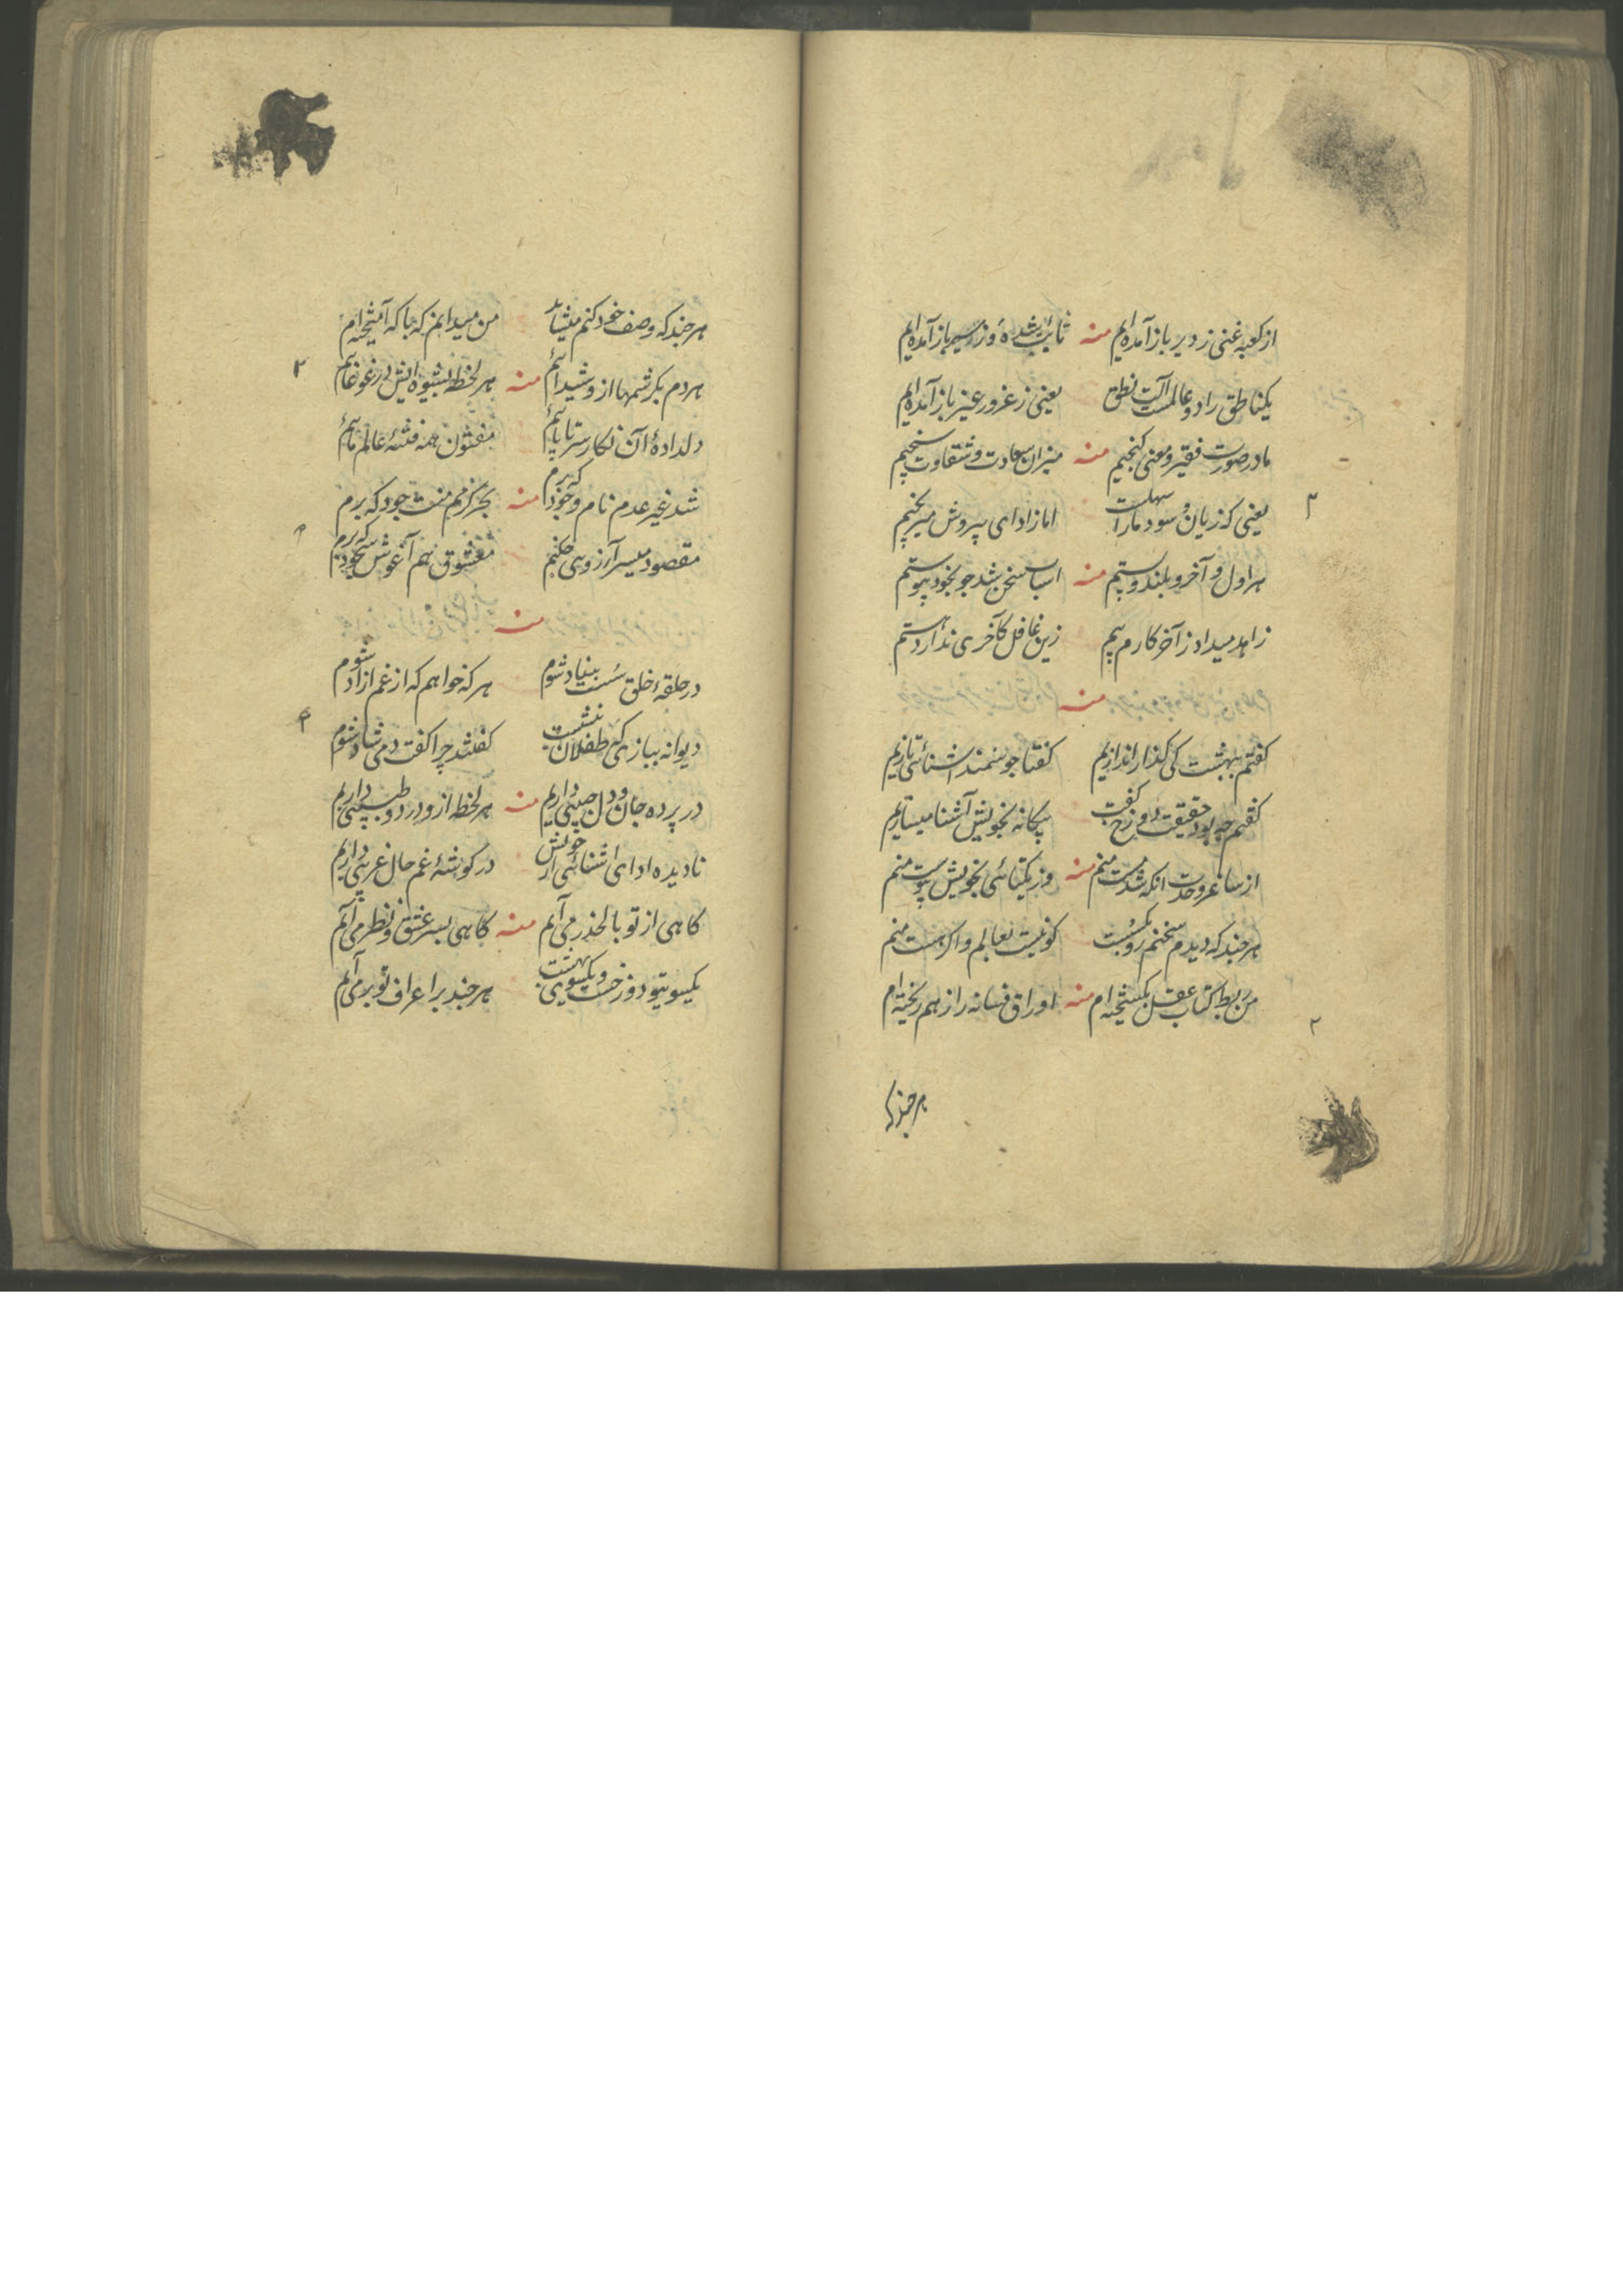 از کعبه غنی ز دیر باز آمده‌ایم منه تایب شده‌ و ز سیر باز آمده‌ایم
یکناطق را دو عالمست آلت نطق یعنی ز غرور غیر باز آمده‌ایم
ما در صورت فقیر و معنی گنجیم منه میزان سعادت و شقاوت سنجیم
یعنی که زیان و سود ما را سهلست اما ز ادای پیروش میرنجیم
هر اول و آخر و بلند و پستیم منه اسباب سخن شد چو بخود پیوستیم
زاهد میداد ز آخر کارم بیم زین غافل کآخری ندارد هستیم
منه
گفتم ببهشت کی گذار اندازیم گفتا چو سمند آشنائی تازیم
گفتم چه بود حقیقت دوزخ گفت بیگانه بخویش آشنا میسازیم
از ساغر وحدت آنکه شد مست منم منه وز یکتائی بخویش پیوست منم
هر چند که دیدم سخنم رو بکسست کو نیست بعالم و اگر هست منم
من ربط کتاب عقل بگسیخته‌ام منه اوراق فسانه را ز هم ریخته‌ام
هر چند که
هر چند که وصف خود کنم میشاید من میدانم که با که آمیخته‌ام
هر دم بکرشمها از و شیدائیم منه هر لحظه بشیوه‌ایش در غوغائیم
دلداده آن نگار سر تا پائیم مفتون همه فتنه عالم مائیم
شد غیر عدم نام وجودا که برم منه بجز کرمم منت جود که برم
مقصود میسر آرزوی چکنم معشوق هم آغوش سجود که برم
منه
در حلقه خلق سست بنیاد شوم هر گه خواهم که از غم آزاد شوم
دیوانه ببازی‌گه طفلان بنشست گفتند چرا گفت دمی شاد شوم
در پرده جان و دل حبیبی داریم منه هر لحظه ازو درد و طبیبی داریم
نادیده ادای آشنائی از خویش در گوشه غم حال غریبی داریم
گاهی از تو بالحذر می‌آیم منه گاهی بسر عشق و نظر می‌آیم
یکسو بتو دوزخست و یکسوی بهشت هر چند بر اعراف تو بر می‌آیم